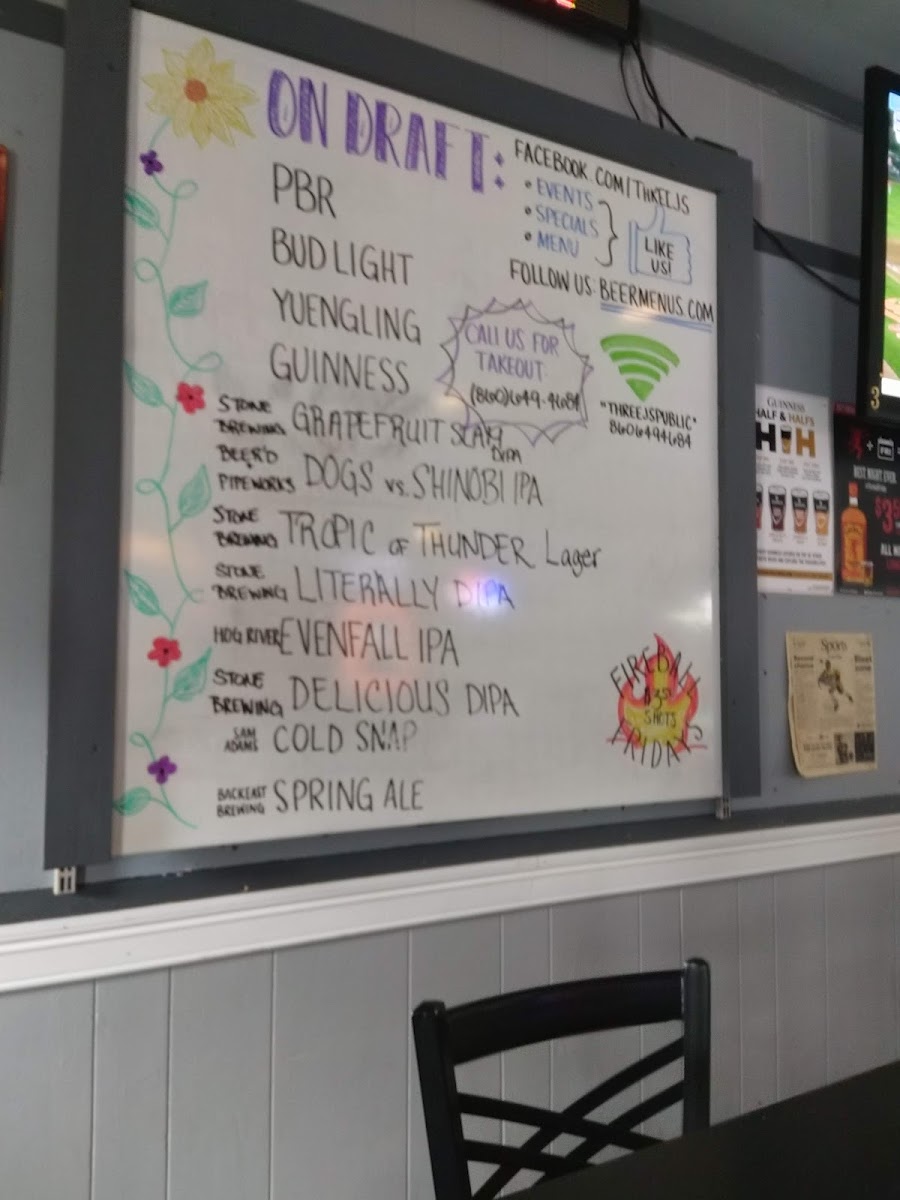 ON DRAFT:
PBR
BUD LIGHT
YUENGLING
GUINNESS
STONE BREWING GRAPEFRUIT
DIPA
BEER'D PIPEWORKS DOGS vs. SHINOBI IPA
STONE BREWING TROPIC OF THUNDER Lager
STONE BREWING LITERALLY DIPA
HOG RIVER EVENFALL IPA
STONE BREWING DELICIOUS DIPA
SAM ADAMS COLD SNAP
BACKEAST BREWING SPRING ALE
FACEBOOK.COM/THREEJS
• EVENTS
• SPECIALS
• MENU
LIKE
US!
FOLLOW US: BEERMENUS.COM
CALL US FOR
TAKEOUT
(860)649-4684
"THREEJSPUBLIC"
8606494684
FIREBALL
$3
SHOTS
FRIDAYS
GUINNESS
HALF & HALFS
H H
BEST NIGHT EVER
$3
Sports
3